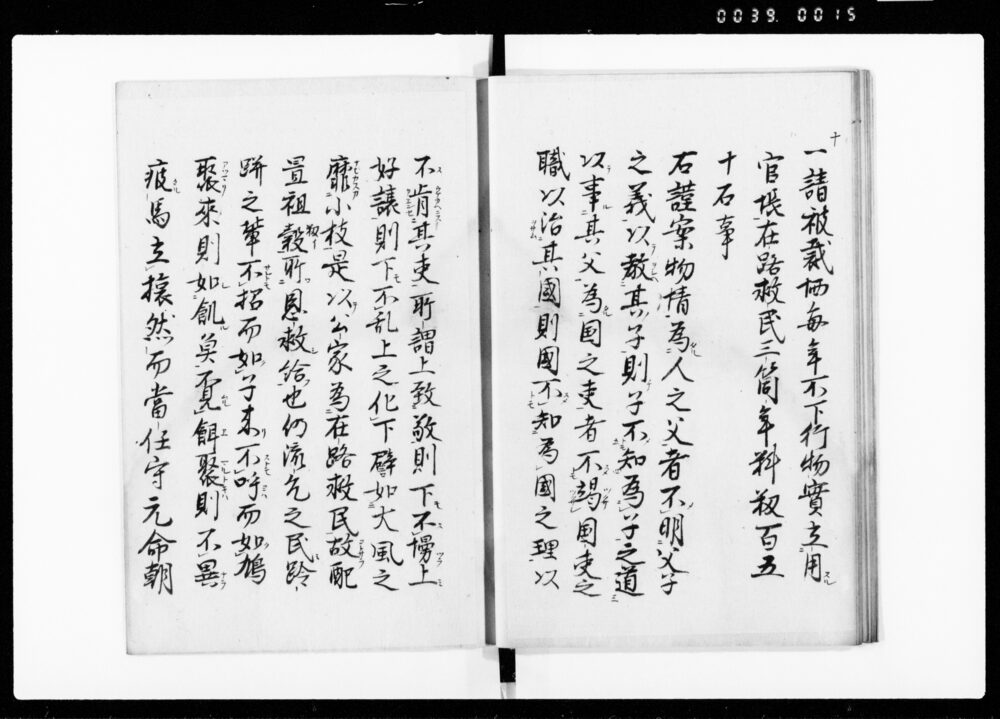 0039. 0015
十
一請被裁㭽每年不下行物實立用
官帳在路救民三箇年料籾百五
十石事
右謹案物情為人之父者不明父子
之義以教其子則子不知為子之道
以事其父為国之吏者不竭国吏之
職以治其國則國不知為國之理以
不肯其吏所謂上致敬則下不慢上
好讓則下不乱上之化下譬如大風之
靡小枝是以公家為在路救民故配
置祖穀所恩救給也仍流乞之民跉
跰之輩不招而如子来不呼而如鳩
聚來則如飢莫不異
疲馬立攘然而當任守元命朝